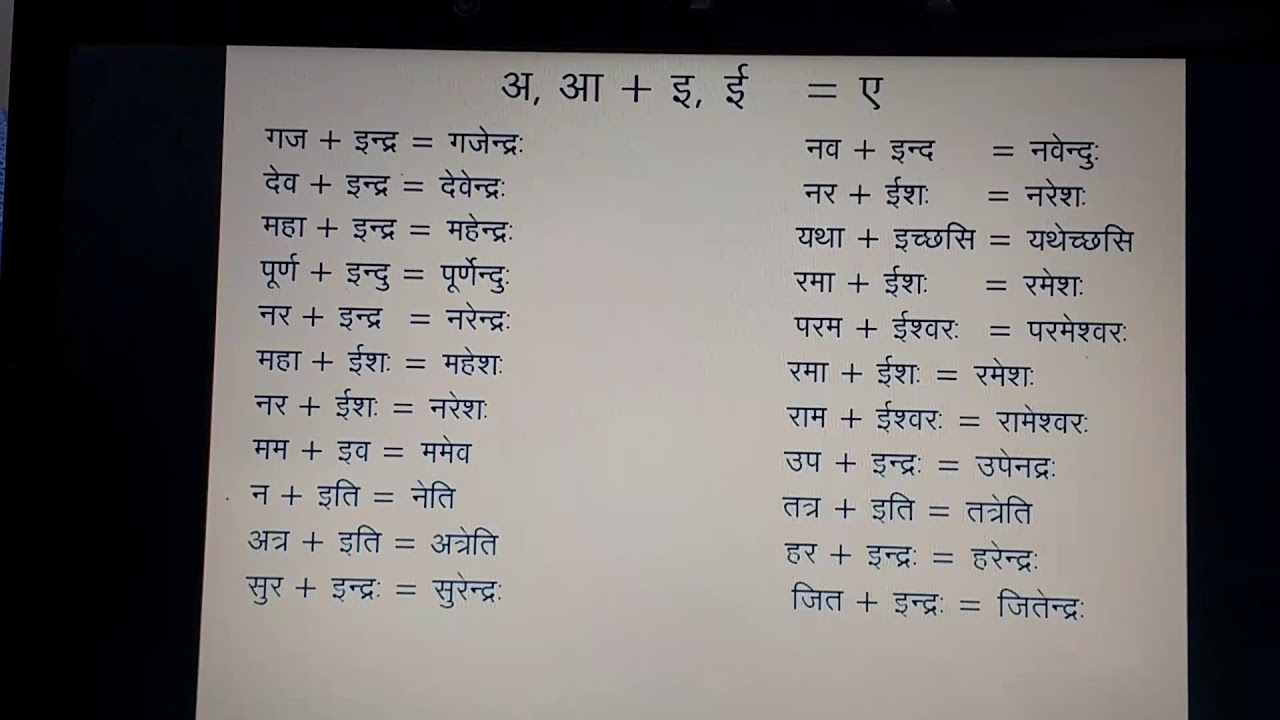 अ, आ + इ, ई = ए
गज + इन्द्र = गजेन्द्रः
देव + इन्द्र = देवेन्द्रः
महा + इन्द्र = महेन्द्रः
पूर्ण + इन्दु = पूर्णेन्दुः
नर + इन्द्र = नरेन्द्रः
महा + ईशः = महेशः
नर + ईशः = नरेशः
मम + इव = ममेव
न + इति = नेति
अत्र + इति = अत्रेति
सुर + इन्द्रः = सुरेन्द्रः
नव + इन्द = नवेन्दुः
नर + ईशः = नरेशः
यथा + इच्छसि = यथेच्छसि
रमा + ईशः = रमेशः
परम + ईश्वरः = परमेश्वरः
रमा + ईशः = रमेशः
राम + ईश्वरः = रामेश्वरः
उप + इन्द्रः = उपेनद्रः
तत्र + इति = तत्रेति
हर + इन्द्रः = हरेन्द्रः
जित + इन्द्रः = जितेन्द्रः